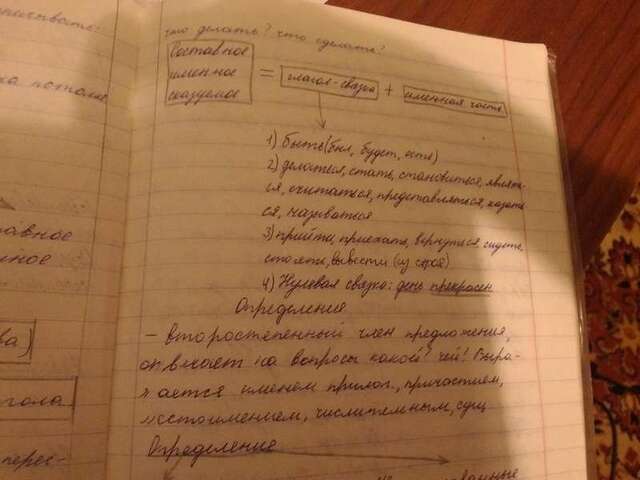 что делать? что сделать?
Составное
именное
сказуемое
= глагол-связка + именная часть
1) быть (был, будет, есть)
2) делаться, стать, становиться, являть-
ся, считаться, представляться, казать
ся, называться
3) прийти, приехать, вернуться, сидеть,
стоять, вывести (из строя)
4) Нулевая связка: день прекрасен
Определения
– второстепенный член предложения,
отвечает на вопросы какой? чей? Выра-
жается именем прилаг., причастием,
местоимением, числительным, сущ
Определение
потолке
ва)
гола